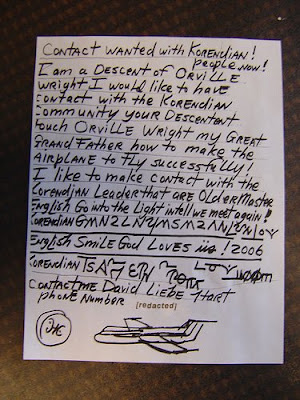 CONTACT WANTED WITH KORENDIAN!
PEOPLE NOW!
I am a DESCENT OF ORVILLE
WRIGHT I WOULD LIKE TO HAVE
CONTACT WITH THE KORENDIAN
COMMUNITY YOUR DESCENTENT
TOUCH ORVILLE WRIGHT MY GREAT
GRAND FATHER HOW TO MAKE THE
AIRPLANE TO FLY SUCCESSFULLY!
I LIKE TO MAKE CONTACT WITH THE
KORENDIAN LEADER THAT ARE OLDER MASTER
ENGLISH GO INTO THE LIGHT INTELL WE MEET AGAIN!
KORENDIAN
ENGLISH SMILE GOD LOVES ! 2006
KORENDIAN
CONTACT ME DAVID LIEBE HART
PHONE NUMBER [redacted]